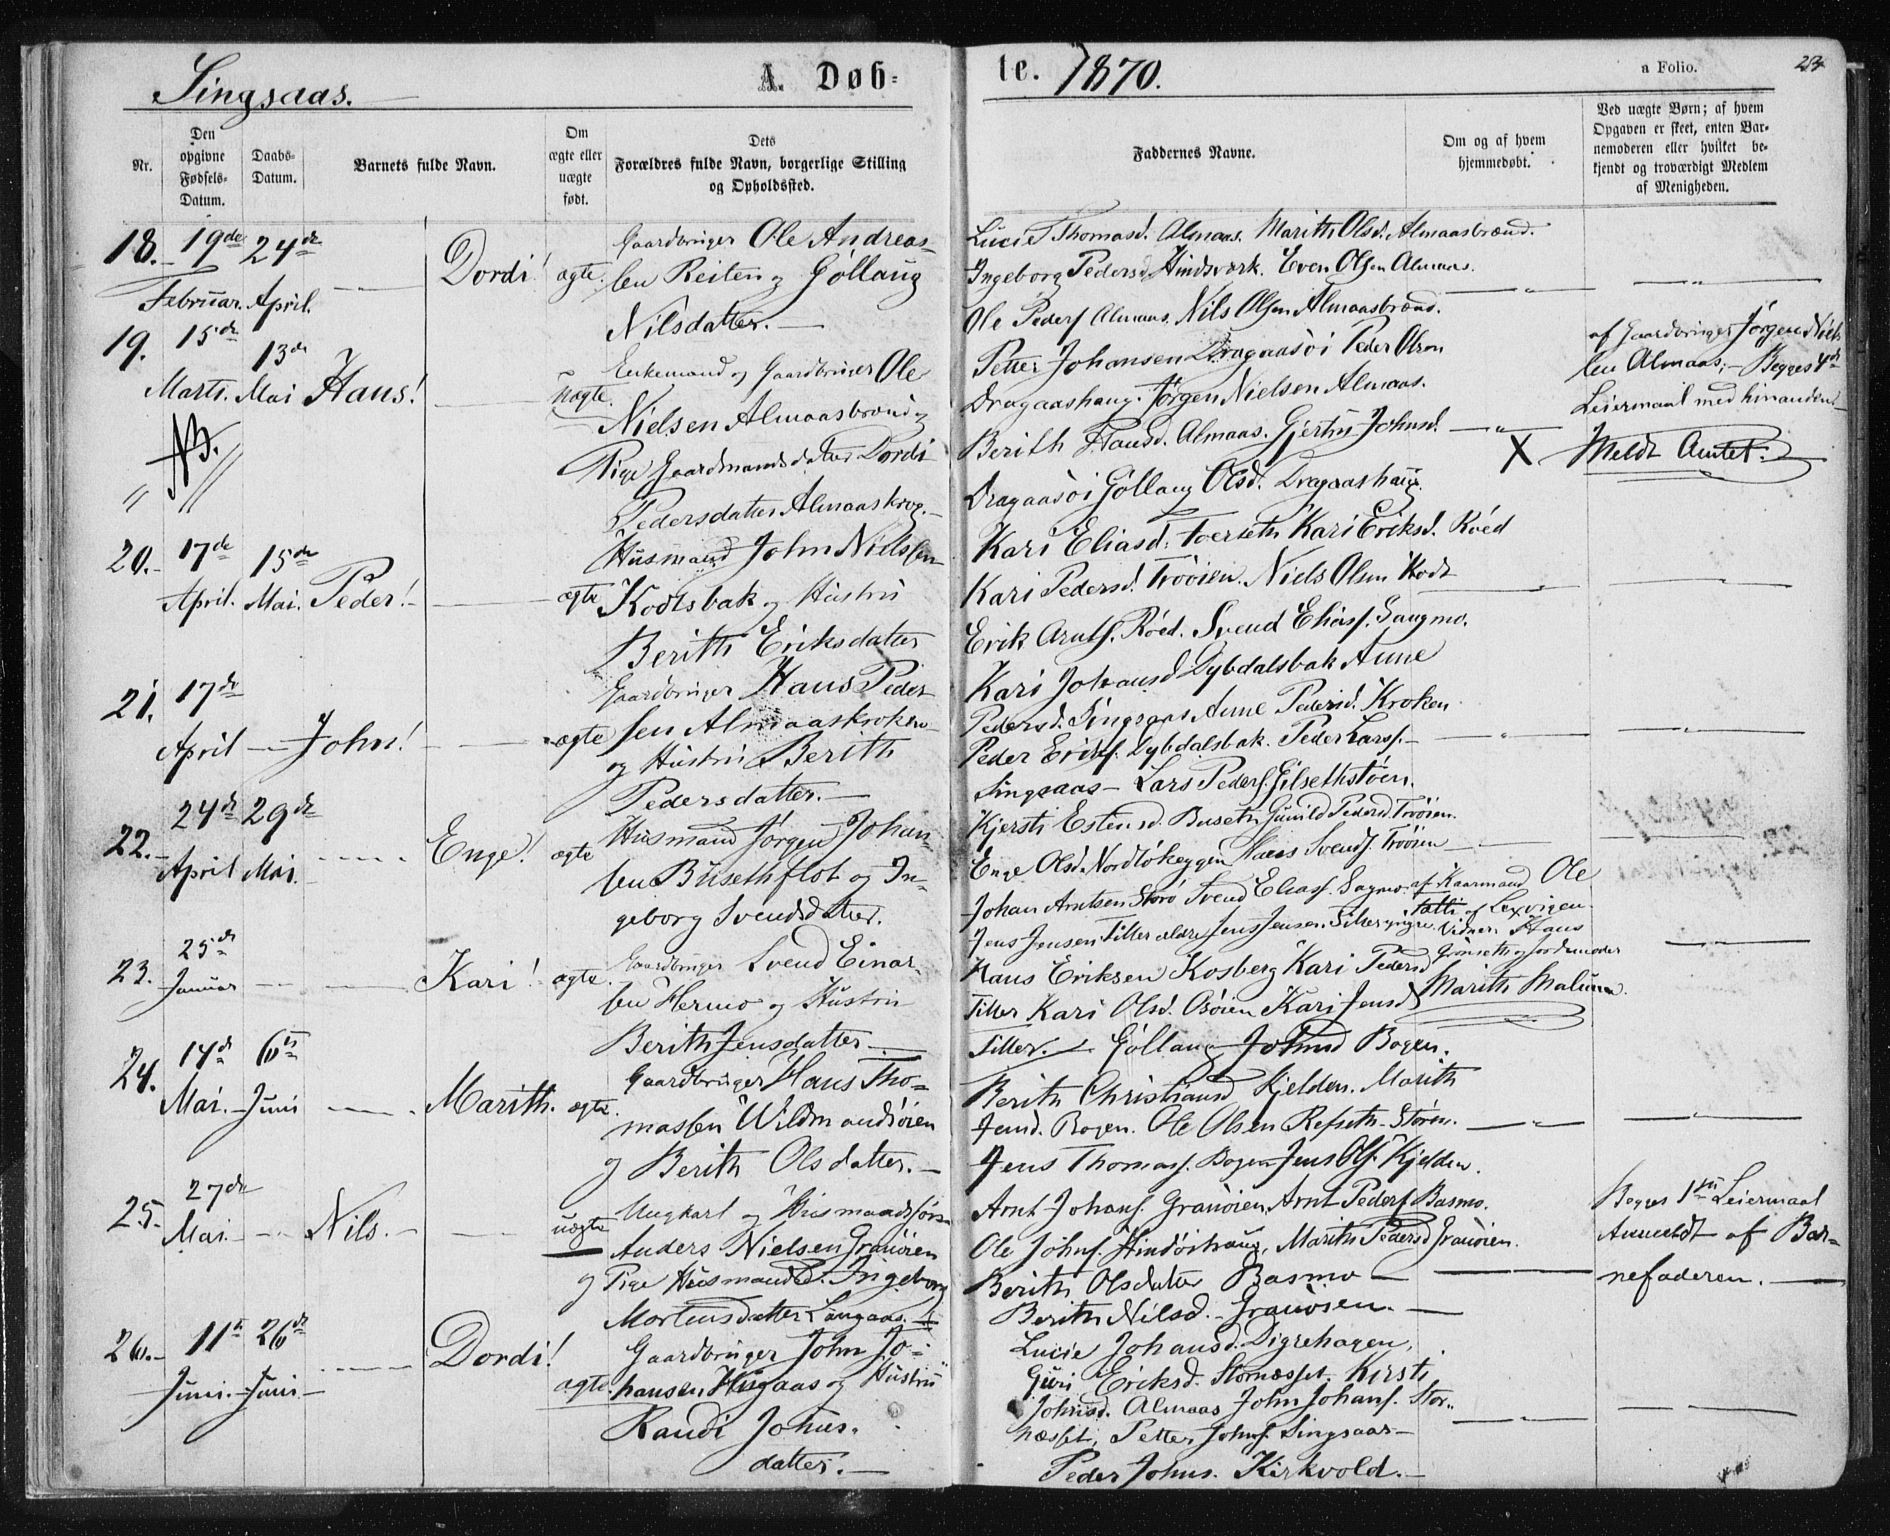 Singsaas.
A. Døb-
Nr.
Den opgivne Fødsels-Datum.
Daabs-Datum.
Barnets fulde Navn.
Om ægte eller uægte født.
Dets Forældres fulde Navn, borgerlige Stilling og Opholdssted.
18. 19de Februar. 24de April. Dordi! ægte.
Gaardbruger Ole Andreas-
sen Reiten og Göllaug
Nilsdatter.
19. 15de Marts. 13de Mai Hans! uægte.
NB.
Enkemand og Gaardbruger Ole
Nielsen Almaasbrænd og
Pige Gaardmandsdatter Dordi
Pedersdatter Almaaskrog.
20. 17de April. 15de Mai. Peder! ægte
Husmand John Nielsen
Kodtsbak og Hustru
Berith Eriksdatter
21. 17de April John! ægte
Gaardbruger Hans Peder-
sen Almaaskroken
og Hustru Berith
Pedersdatter.
22. 24de April 29de Mai. Enge! ægte
Husmand Jørgen Johan-
sen Busethflot og In-
geborg Svendsdatter.
23. 25de Januar Kari! ægte.
Gaardbruger Svend Einar-
sen Hermo og Hustru
Berith Jensdatter
24. 14de Mai. 6te Juni Marith. ægte.
Gaardbruger Hans Tho-
massen Wildmandöien
og Berith Olsdatter.
25. 27de Mai. Nils. uægte
Ungkarl og Husmandssøn
Anders Nielsen Granöien
og Pige Husmandsd. Ingeborg
Mortensdatter Langaas.
26. 11te Juni. 26de Juni Dordi! ægte.
Gaardbruger John Jo-
hansen Hugaas og Hustru
Randi Johns-
datter.
te. 1870.
a Folio. 23
Faddernes Navne.
Om og af hvem hjemmedøbt.
Ved uægte Børn; af hvem Opgaven er skeet, enten Barnemoderen eller hvilket bekjendt og troværdigt Medlem af Menigheden.
Lucie Thomasd. Almaas. Marith Olsd. Almaasbrænd.
Ingeborg Pedersd. Hindsværk. Even Olsen Almaas.
Ole Peders. Almaas. Nils Olsen Almaasbrænd.
Petter Johansen Dragaasöi Peder Olsen
Dragaashaug. Jørgen Nielsen Almaas.
Berith Hansd. Almaas. Gjertru Johnsd.
Dragaasöi Göllaug Olsd. Dragaashaug.
af Gaardbruger Jørgen Niel-
sen Almaas; Begges 4de
Leiermaal med hinanden.
X Meldt Amtet.
Kari Eliasd. Kari Eriksd. Röed
Kari Pedersd. Tröoien. Niels Olsen Kodt
Erik Arnts. Röed. Svend Elias. Saugmo.
Kari Johansd Dybdalsbak Anne
Pedersd. Singsaas Anne Pedersd. Kroken
Peder Eriks. Dybdalsbak. Peder Lars.
Singsaas Lars Peders. Gilsethstöen.
Kjersti Estensd. Buseth Gunild Pedersd. Tröoien.
Enge Olsd. Nordlökeggen Haas Svends. Tröoien
Johan Arntsen Storö Svend Elias. Sagmo.
af Kaarmand Ole
af Lexvigen.
Vidner: Haas
Grönseth og Jordemoder
Marith Malum.
Jens Jensen Tiller ældre Jens Jensen Tiller yngre.
Hans Eriksen Kosberg Kari Pedersd
Tiller Kari Olsd. Osöien Kari Jensd
Tiller. Göllaug Johnsd Bogen.
Berith Christiansd Kjelden. Marith
Jensd. Bogen. Ole Olsen Refseth-Stören.
Jens Thomas. Bogen Jens Ols. Kjelden.
Arnt Johans. Granöien, Arnt Peders. Basmo.
Ole Johns. Hindöihaug, Marith Pedersd Granöien.
Berith Olsdatter Basmo
Berith Nilsd. Granöien.
Begges 1ste Leiermaal
Anmeldt af Bar-
nefaderen.
Lucie Johansd. Digrehagen.
Guri Eriksd. Stornæsset. Kirsti
Johnsd. Almaas John Johans. Stor-
næsset, Petter Johns. Singsaas
Peder Johns. Kirkvold.